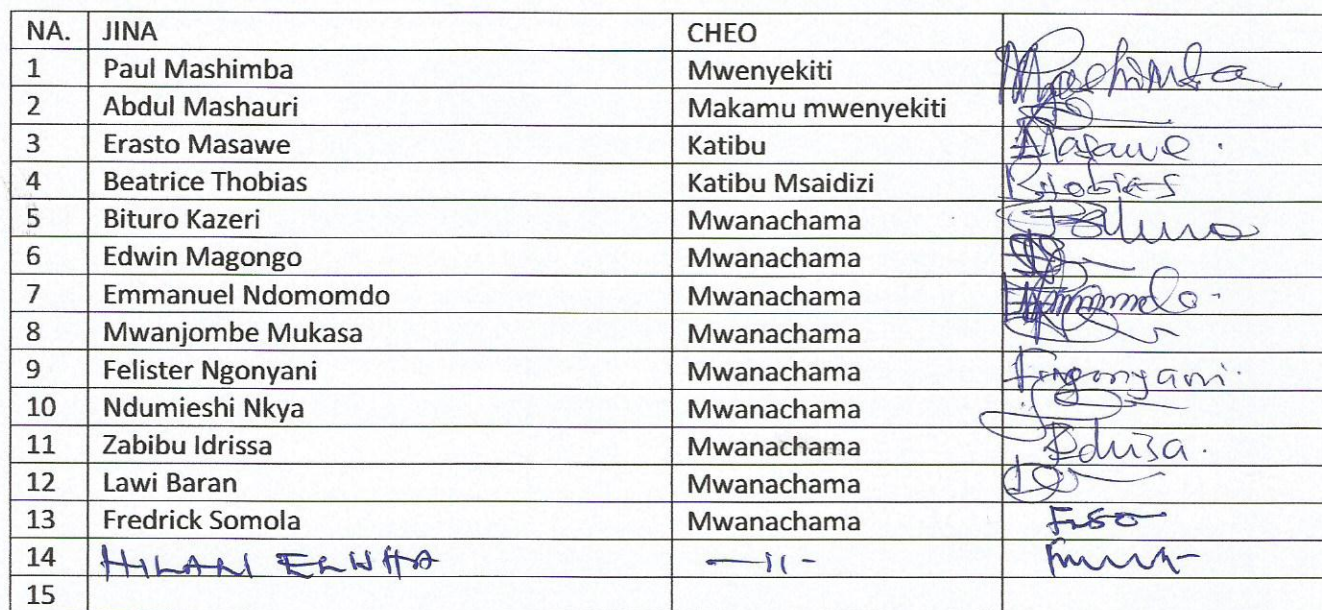 NA. JINA CHEO
1 Paul Mashimba Mwenyekiti Mashimba
2 Abdul Mashauri Makamu mwenyekiti
3 Erasto Masawe Katibu Masawe.
4 Beatrice Thobias Katibu Msaidizi
5 Bituro Kazeri Mwanachama
6 Edwin Magongo Mwanachama
7 Emmanuel Ndomomdo Mwanachama
8 Mwanjombe Mukasa Mwanachama
9 Felister Ngonyani Mwanachama Fngonyani.
10 Ndumieshi Nkya Mwanachama
11 Zabibu Idrissa Mwanachama
12 Lawi Baran Mwanachama
13 Fredrick Somola Mwanachama
14 —11-
15